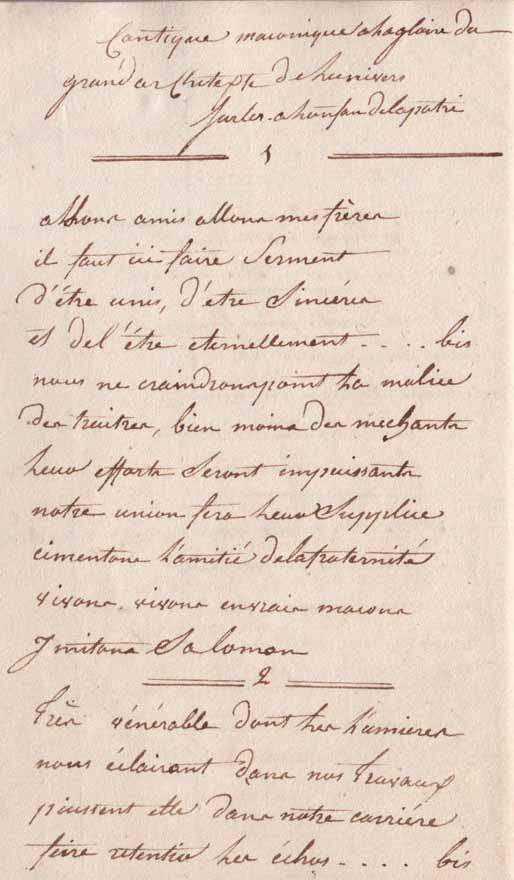 Cantique maconique a la gloire du
grand architecte de l'univers
Sur ler a l'enfan de la patri
1
allons amis allons mes frères
il faut ici faire Serment
d'étre unis, d'etre Sincéres
et de l'étre eternellement .... bis
nous ne craindrons point la malice
des traitres, bien moins des mechants
leur efforts Seront impuissants
notre union fera leur Supplice
cimentons l'amitié de la fraternité
vivons. vivons en vrais macons
Jmitons Salomon
2
Trés vénérable dont les lumieres
nous éclairant dans nos travaux
puissent elle dans notre carriére
faire retentir les échos .... bis